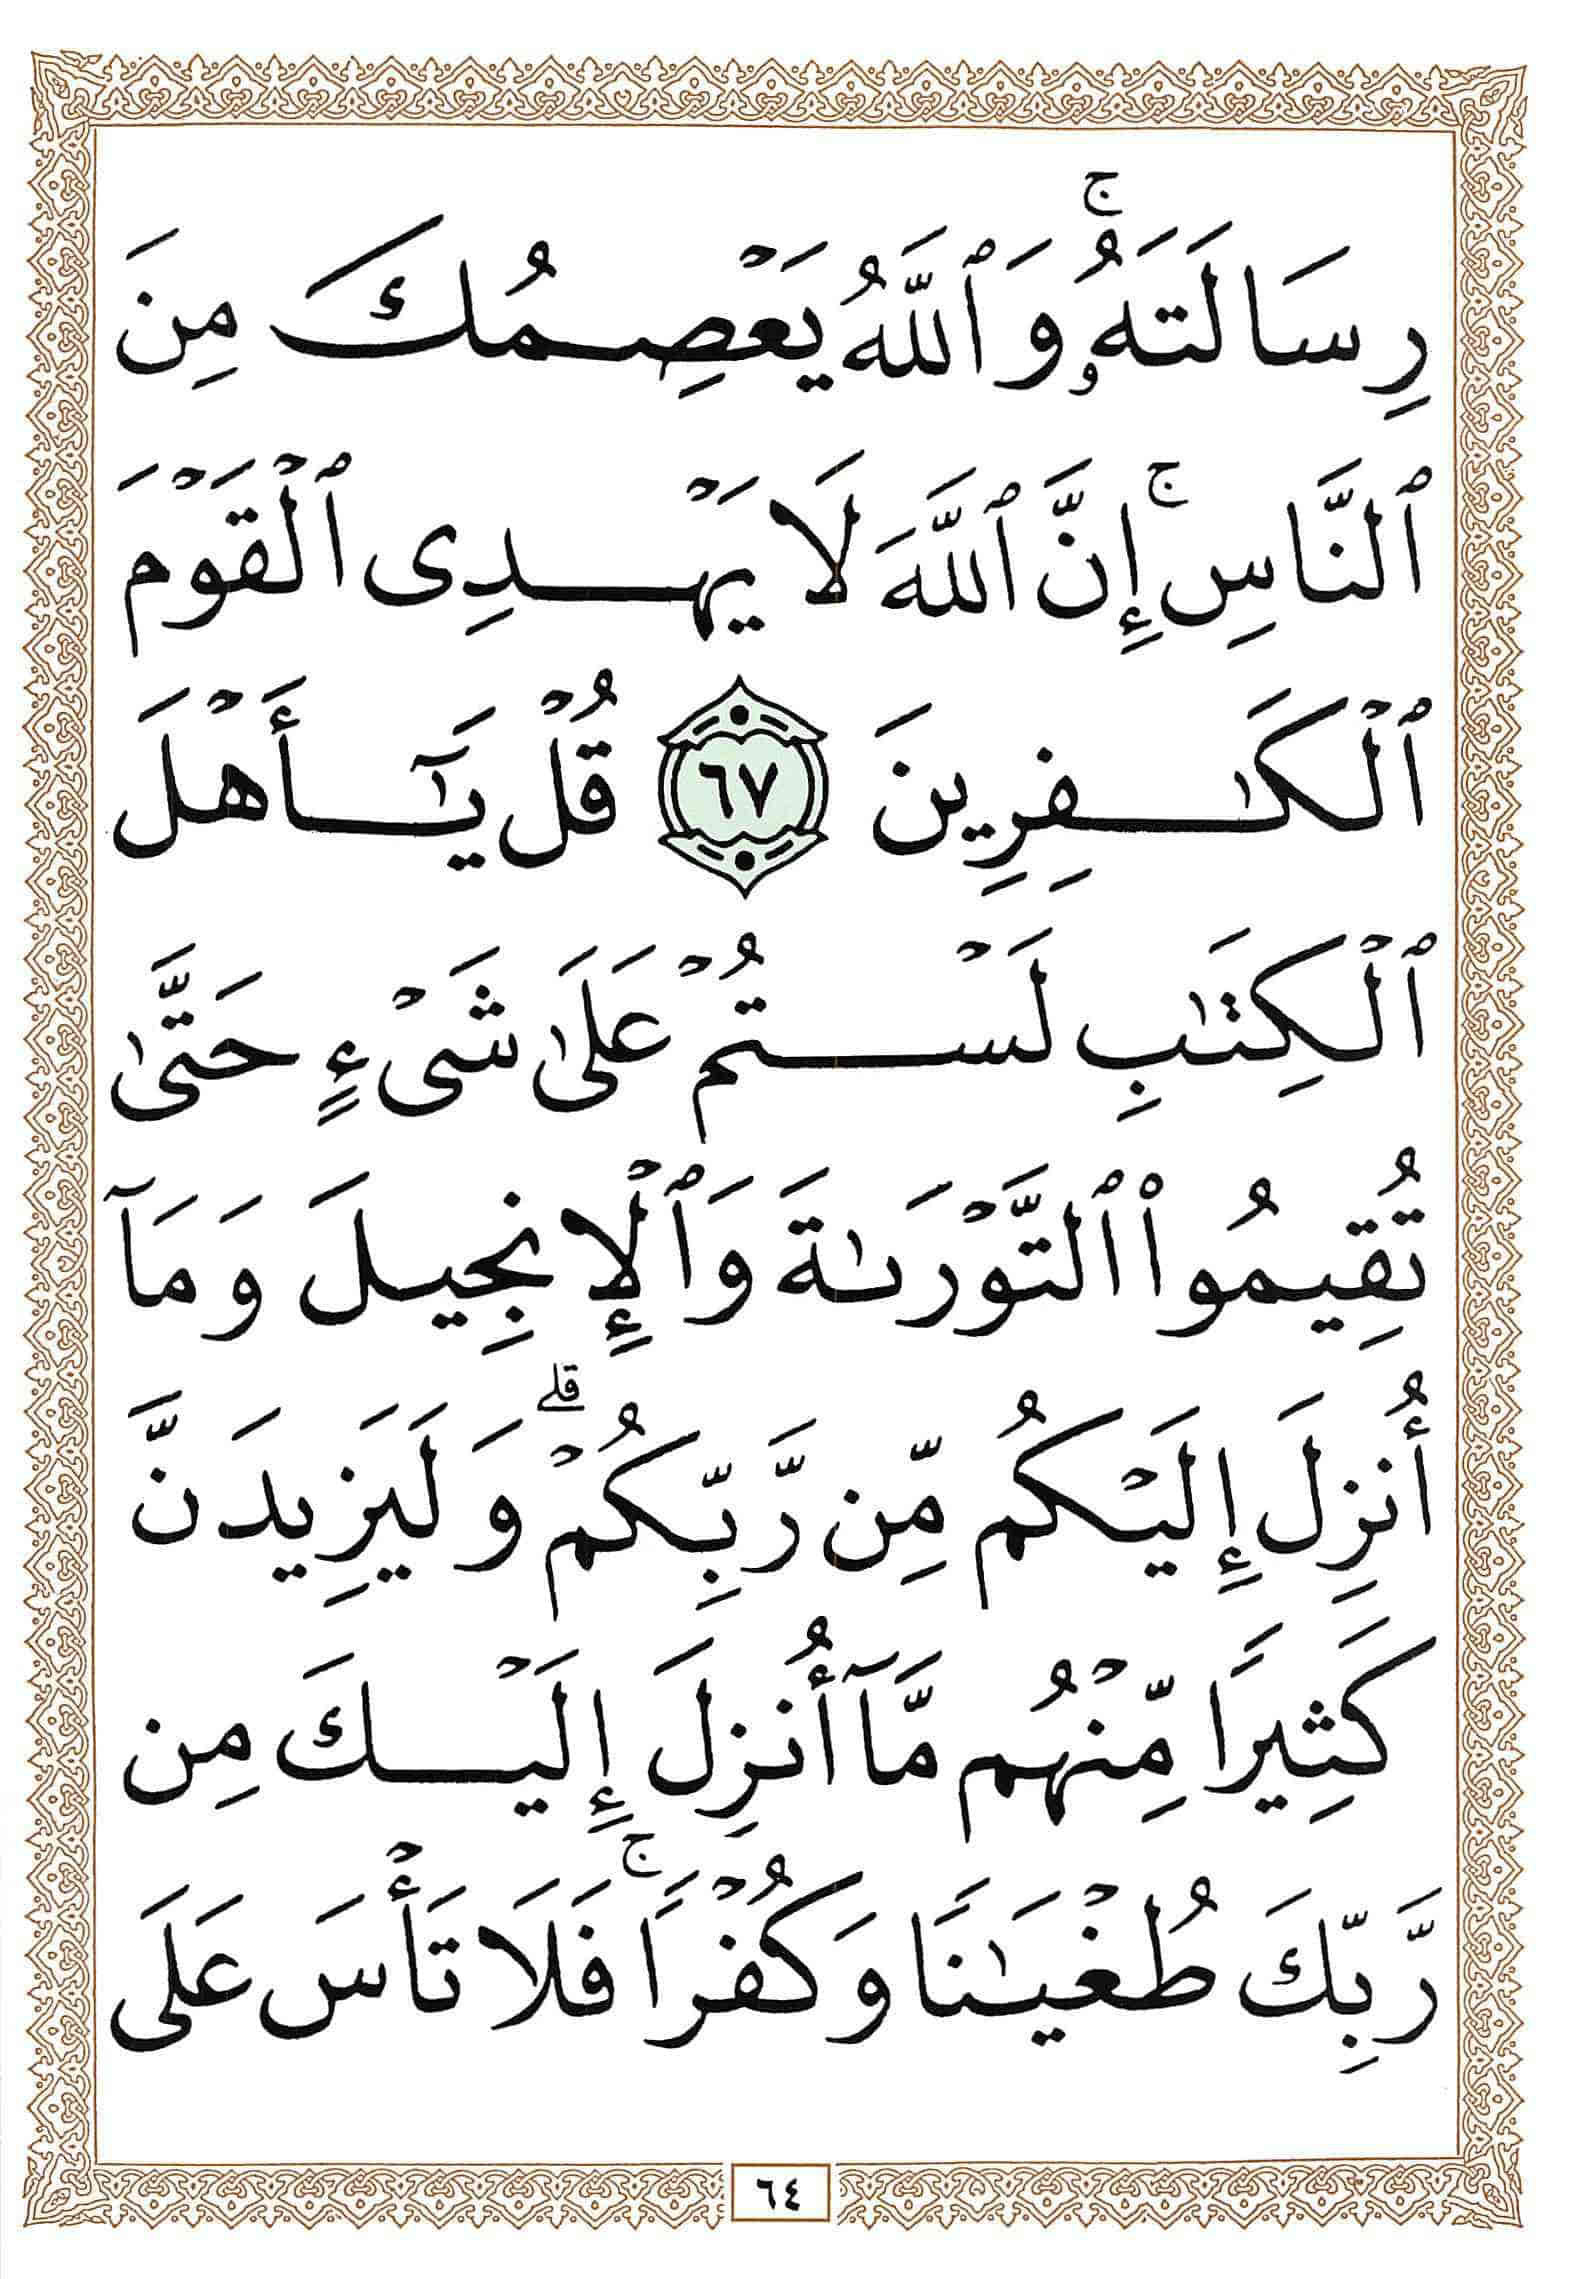 رِسَالَتَهُۥۚ وَٱللَّهُ يَعۡصِمُكَ مِنَ
ٱلنَّاسِۚ إِنَّ ٱللَّهَ لَا يَهۡدِى ٱلۡقَوۡمَ
ٱلۡكَٰفِرِينَ ٦٧ قُلۡ يَٰٓأَهۡلَ
ٱلۡكِتَٰبِ لَسۡتُمۡ عَلَىٰ شَىۡءٍ حَتَّىٰ
تُقِيمُوا۟ ٱلتَّوۡرَىٰةَ وَٱلۡإِنجِيلَ وَمَآ
أُنزِلَ إِلَيۡكُم مِّن رَّبِّكُمۡۗ وَلَيَزِيدَنَّ
كَثِيرًا مِّنۡهُم مَّآ أُنزِلَ إِلَيۡكَ مِن
رَّبِّكَ طُغۡيَٰنًا وَكُفۡرًاۚ فَلَا تَأۡسَ عَلَى
٦٤